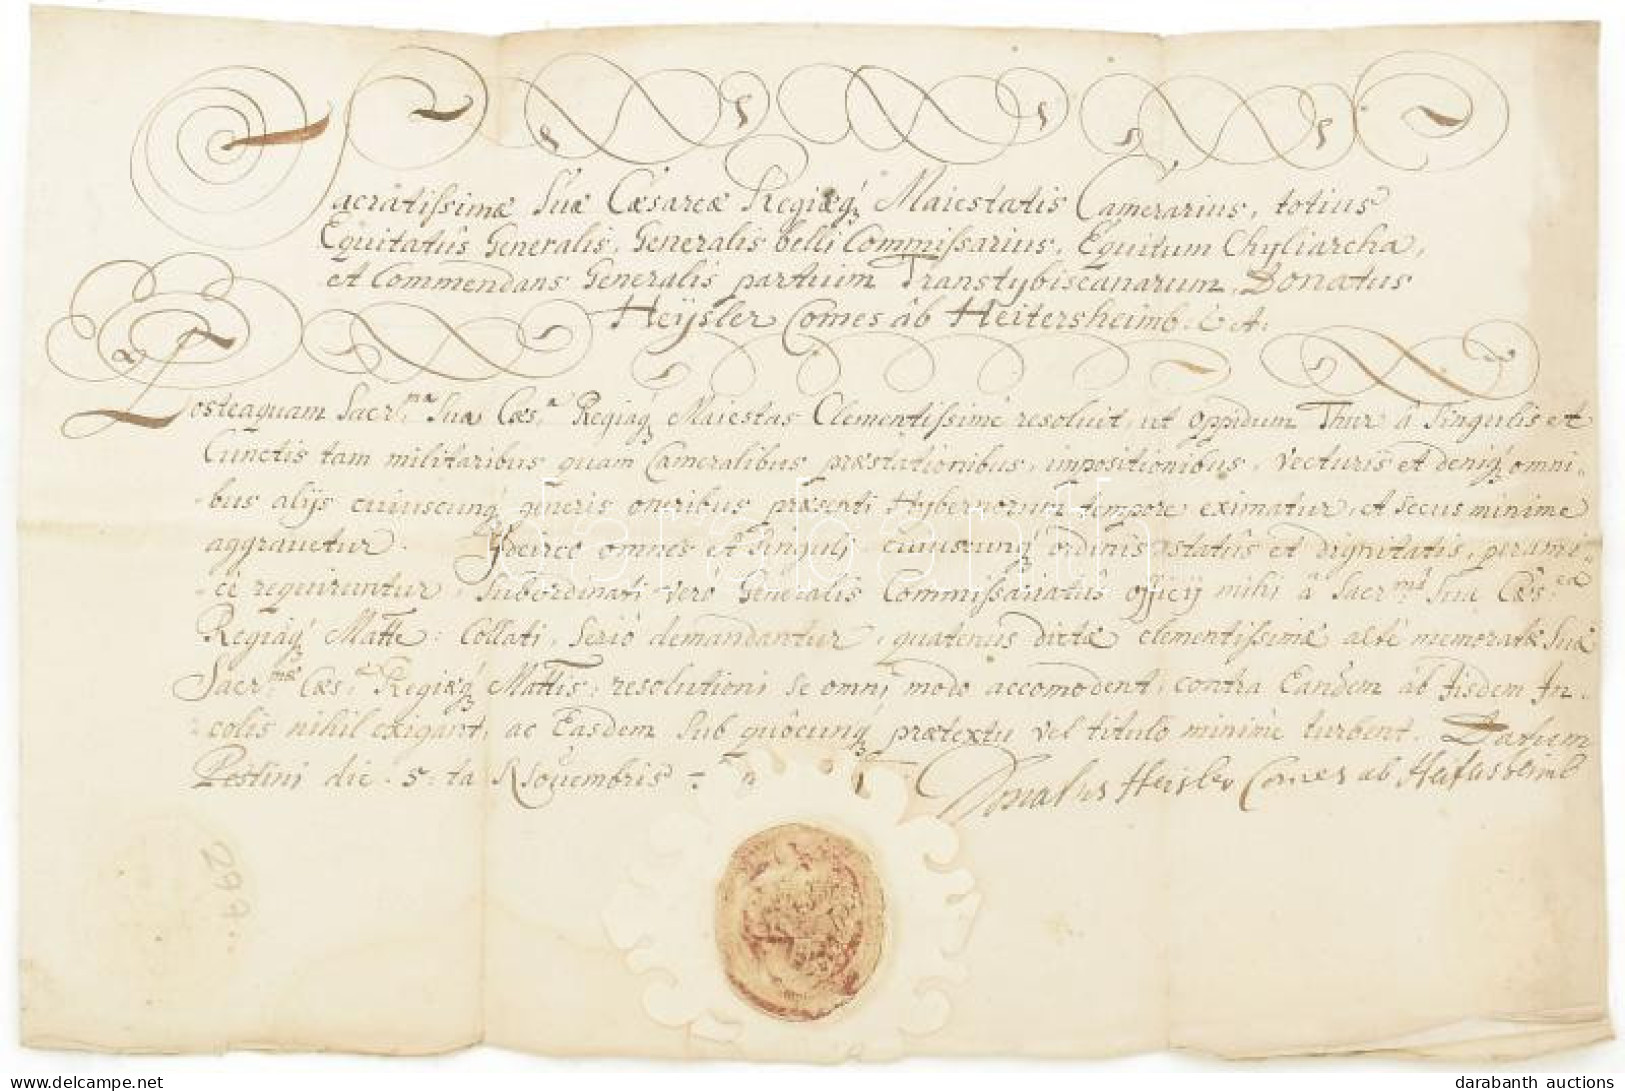 Sacratissimæ Suæ Cæsareæ Regiæq́ꝫ Maiestatis Camerarius, totius
Equitatûs Generalis, Generalis belli Commissarius, Equitum Chyliarcha,
et Commendans Generalis partium Transtybiscanarum, Donatus
Heÿsler Comes âb Heitersheimb. &. &t:
Posteaquam Sacr:ma Sua Cæs:a Regiáq́ꝫ Maiestas Clementissimé resoluit, ut oppidum Thur â Singulis et
Cunctis tam militaribus quam Cameralibus præstationibus, impositionibus, vecturis et deniq́ꝫ omni-
-bus alijs cuiuscunq́ꝫ generis oneribus præsenti Hybernorum tempore eximatur, et secus minime
aggravetur. Ydcirco omnes et Singuli cuiuscunq́ꝫ ordinis statûs et dignitatis, peramæ-
-cé requiruntur, Subordinati veró Generalis Commissariatûs officij mihi â Sacr:ma Sua Cæs:ea
Regiáq́ꝫ Matte: Collati, serió demandantur, quatenus dictæ clementissimæ alté memoratæ Suæ
Sacr:mæ Cæs:æ Regiæq́ꝫ Mattis: resolutioni se omni modo accomodent, contra Eandem ab iisdem In-
-colis nihil exigant, ac Easdem Sub quôcunq́ꝫ prætextu vel titulo minimé turbent. Datum
Pestini die 5:ta Novembris
Donatus Heisler Comes ab
297..
darabanth
darabanth auctions